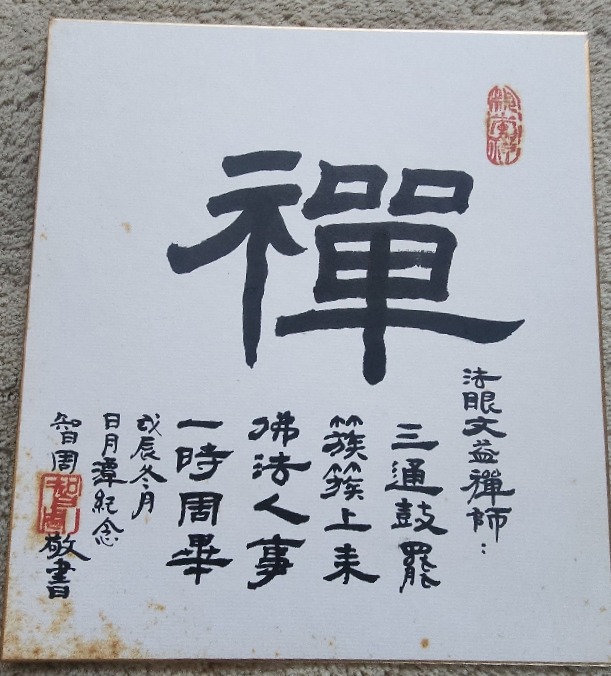 禪
法眼文益禪師：
三通鼓罷
簇簇上来
佛法人事
一時周畢
戊辰冬月
日月潭紀念
智周敬書